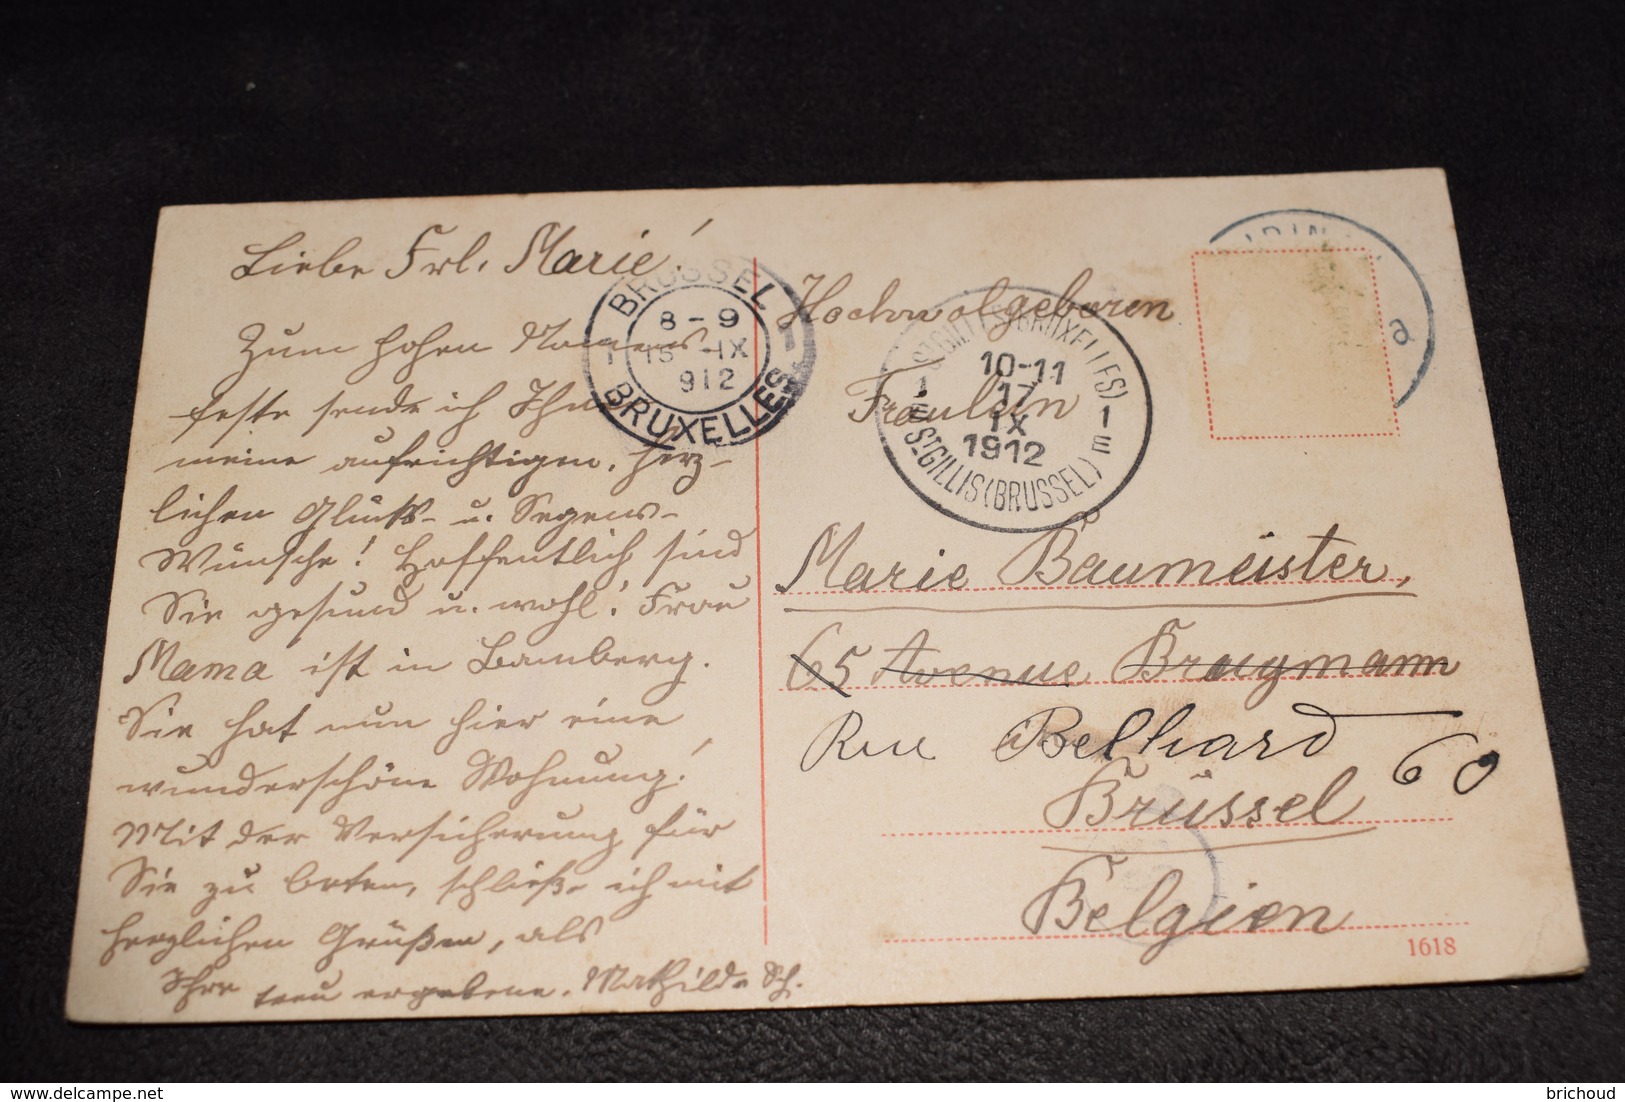 Liebe Frl. Marie!
Zum hohen Namens-
feste sende ich Ihnen
meine aufrichtigen, herz-
lichen Glücks- u. Segens-
Wünsche! Hoffentlich sind
Sie gesund u. wohl! Frau
Mama ist in Bamberg.
Sie hat nun hier eine
wunderschöne Wohnung!
Mit der Versicherung für
Sie zu beten, schließe ich mit
herzlichen Grüßen, als
Ihre treu ergebene. Mathilde Sch.
BRUSSEL
8-9
1 15 -IX
912
BRUXELLES
Hochwolgeboren
Fräulein
ST GILLES (BRUXELLES)
10-11
1 17 1
IX
1912
ST GILLIS (BRUSSEL)
a
Marie Baumeister,
65 Avenue Brugmann
Rue Belliard 60
Brüssel
Belgien
1618
delcampe.net
brichoud